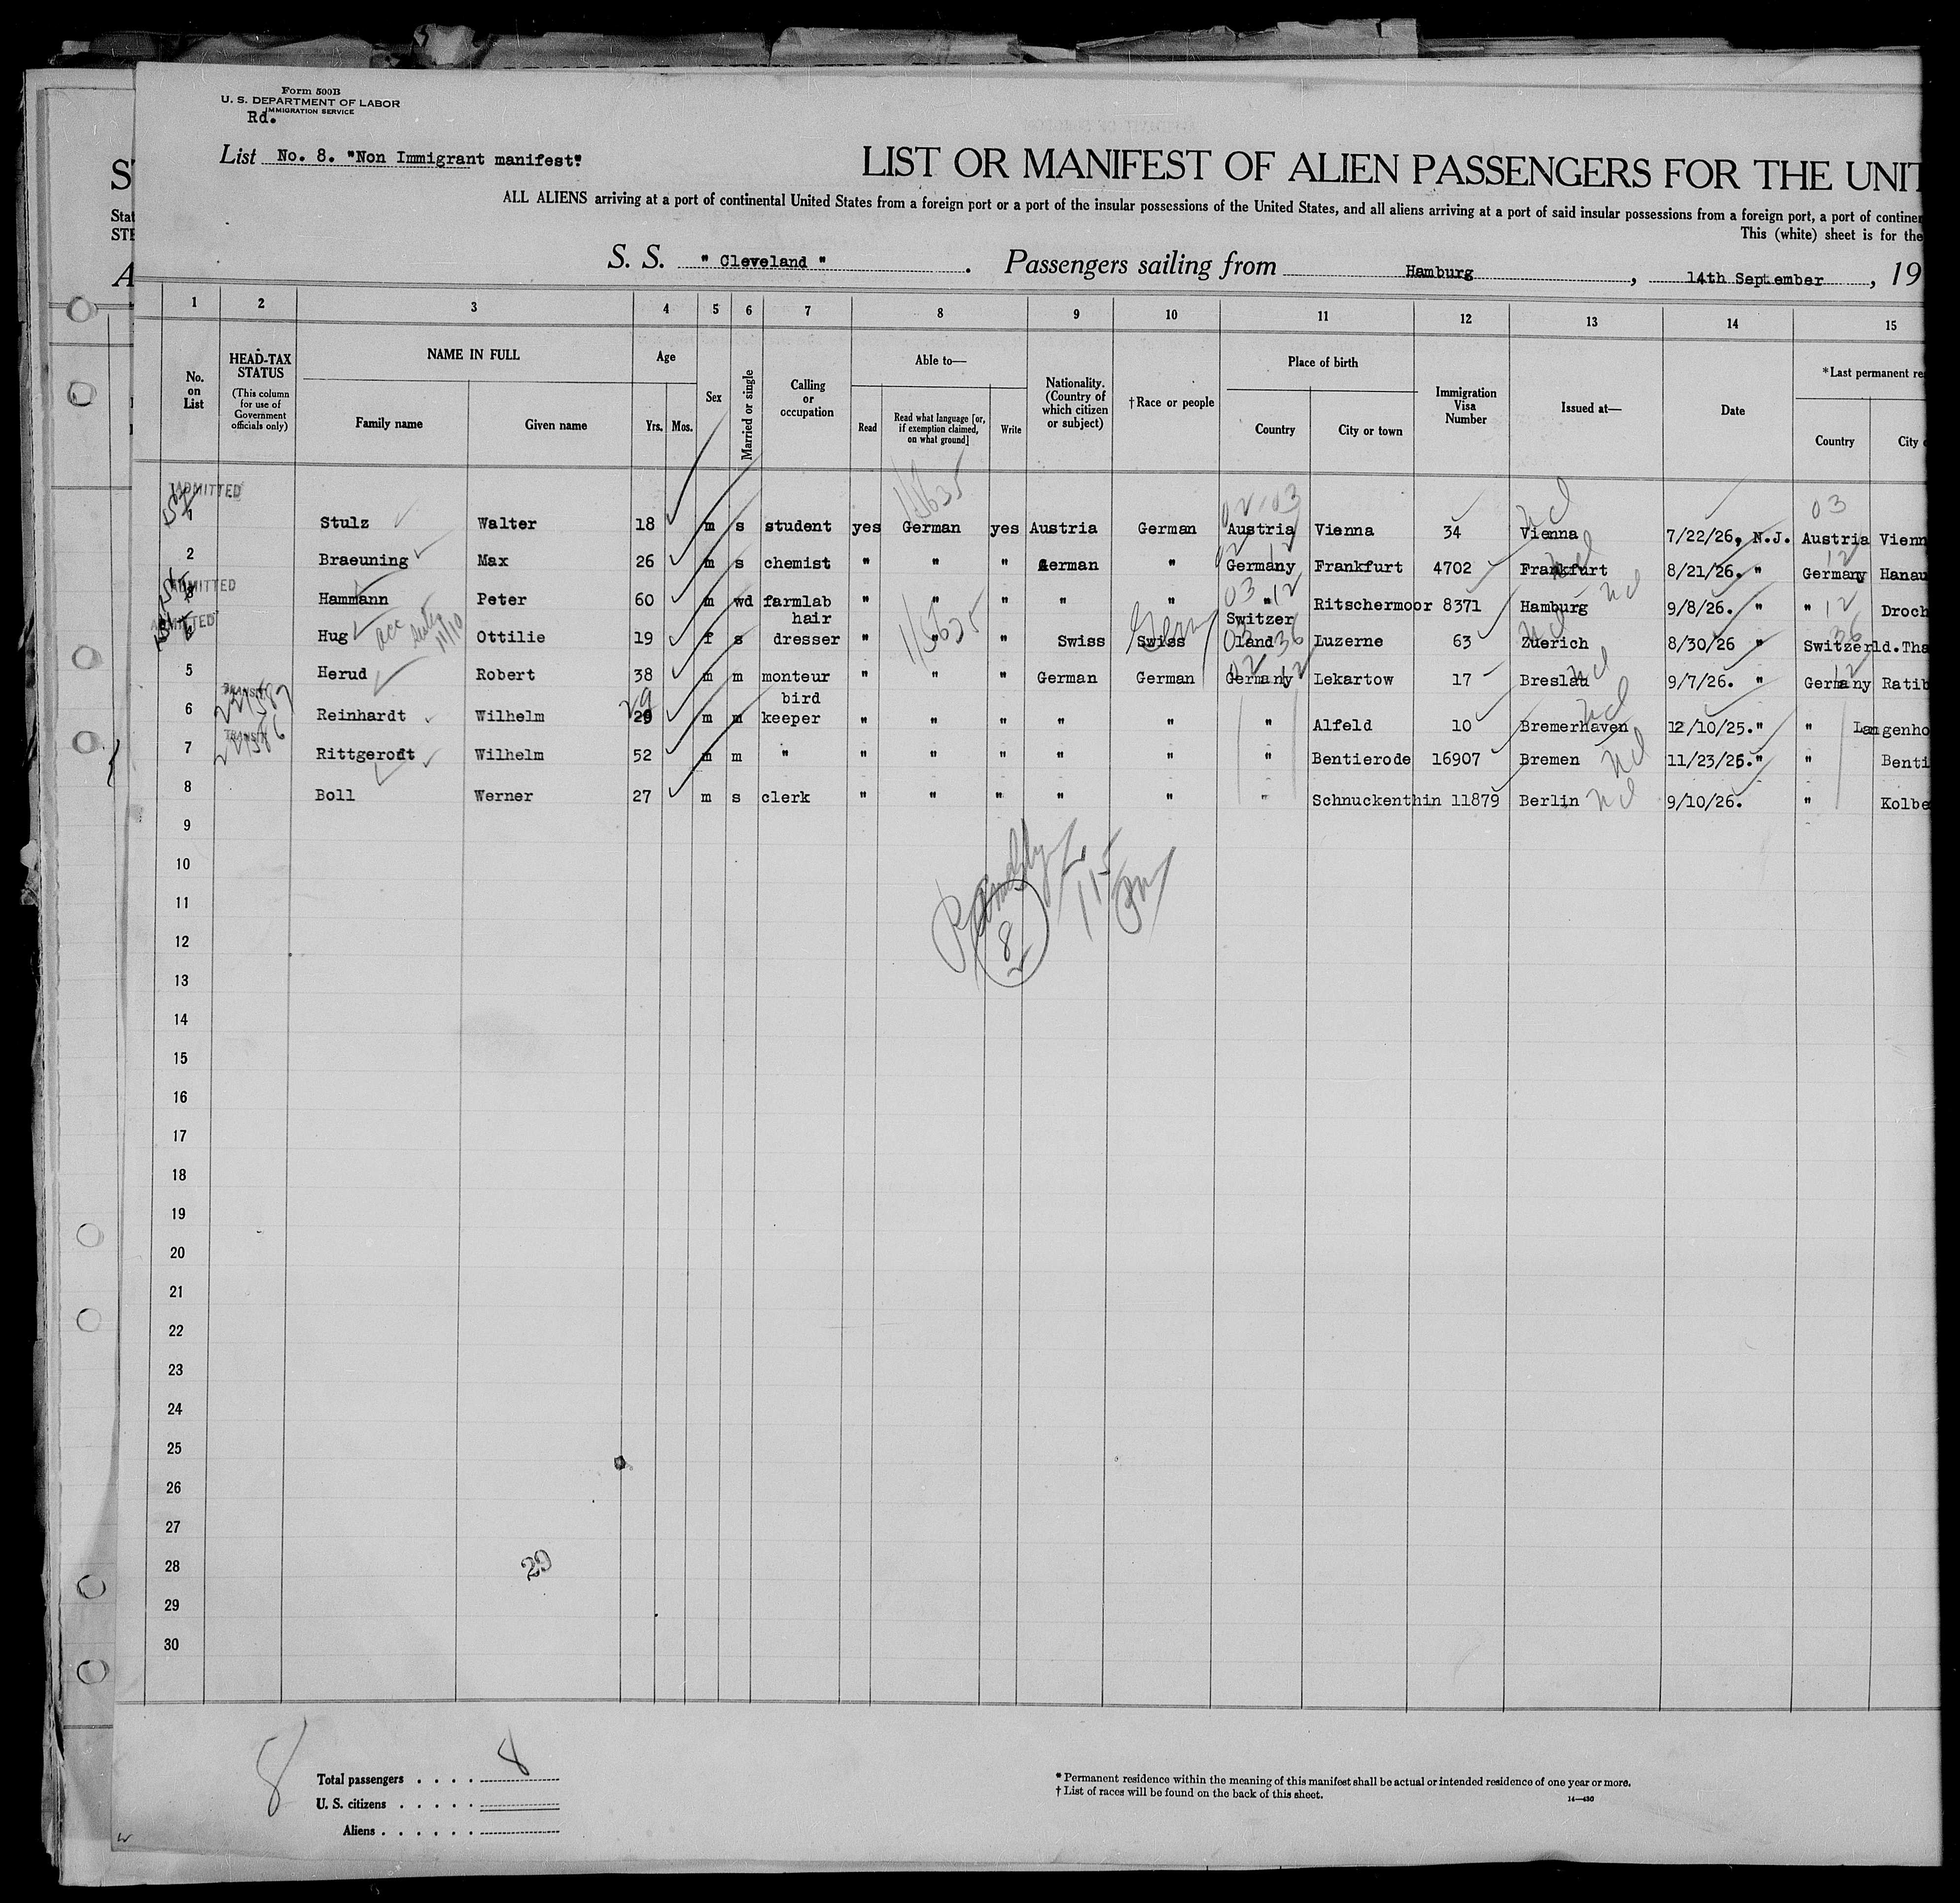 Form 500B
U. S. DEPARTMENT OF LABOR
IMMIGRATION SERVICE
Rd.
List No. 8. "Non Immigrant manifest"
LIST OR MANIFEST OF ALIEN PASSENGERS FOR THE UNIT
ALL ALIENS arriving at a port of continental United States from a foreign port or a port of the insular possessions of the United States, and all aliens arriving at a port of said insular possessions from a foreign port, a port of continen
This (white) sheet is for the
S. S. " Cleveland " . Passengers sailing from Hamburg , 14th September , 19
1 2 3 4 5 6 7 8 9 10 11 12 13 14 15
No. on List
HEAD-TAX STATUS
(This column for use of Government officials only)
NAME IN FULL
Family name Given name
Age
Yrs. Mos.
Sex
Married or single
Calling or occupation
Able to—
Read Read what language [or, if exemption claimed, on what ground] Write
Nationality. (Country of which citizen or subject)
†Race or people
Place of birth
Country City or town
Immigration Visa Number
Issued at—
Date
*Last permanent re
Country City
ADMITTED
1 Stulz Walter 18 m s student yes German yes Austria German Austria Vienna 34 Vienna 7/22/26, N.J. Austria Vienn
2 Braeuning Max 26 m s chemist " " " German " Germany Frankfurt 4702 Frankfurt 8/21/26. " Germany Hanau
ADMITTED
3 Hammann Peter 60 m wd farmlab " " " " " " Ritschermoor 8371 Hamburg 9/8/26. " " Droch
ADMITTED
Hug Ottilie 19 f s hair dresser " " " Swiss Swiss Switzer land Luzerne 63 Zuerich 8/30/26 " Switzerld. Tha
5 Herud Robert 38 m m monteur " " " German German Germany Lekartow 17 Breslau 9/7/26. " Germany Ratib
TRANSIT
6 Reinhardt Wilhelm 29 m m bird keeper " " " " " " Alfeld 10 Bremerhaven 12/10/25. " " Langenho
TRANSIT
7 Rittgerodt Wilhelm 52 m m " " " " " " " Bentierode 16907 Bremen 11/23/25. " " Benti
8 Boll Werner 27 m s clerk " " " " " " Schnuckenthin 11879 Berlin 9/10/26. " Kolbe
9
10
11
12
13
14
15
16
17
18
19
20
21
22
23
24
25
26
27
28
29
30
8
29
8
Total passengers . . . . 8
U. S. citizens . . . . .
Aliens . . . . . .
* Permanent residence within the meaning of this manifest shall be actual or intended residence of one year or more.
† List of races will be found on the back of this sheet.
14—430